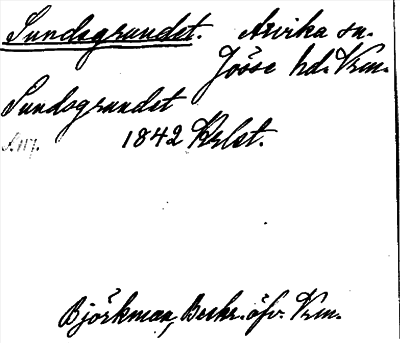 Sundsgrundet. Arvika sn.
Jösse hd. Vrm.
Sundsgrundet
1842 Krlst.
Björkman, Beskr. öfv. Vrm.